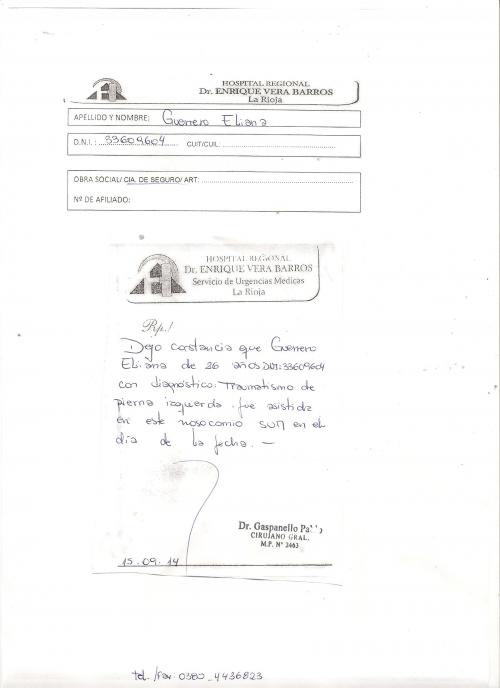 HOSPITAL REGIONAL
Dr. ENRIQUE VERA BARROS
La Rioja
APELLIDO Y NOMBRE: Guerrero Eliana
D.N.I.: 33609604 CUIT/CUIL:
OBRA SOCIAL/ CIA. DE SEGURO/ ART:
Nº DE AFILIADO:
HOSPITAL REGIONAL
Dr. ENRIQUE VERA BARROS
Servicio de Urgencias Medicas
La Rioja
Rp./
Dejo constancia que Guerrero
Eliana de 26 años DNI:33609604
con diagnóstico: Traumatismo de
pierna izquierda. fue asistida
en este nosocomio SUM en el
día de la fecha. —
Dr. Gaspanello
CIRUJANO GRAL.
M.P. Nº 2463
15.09.14
tel./fax: 0380_4436823